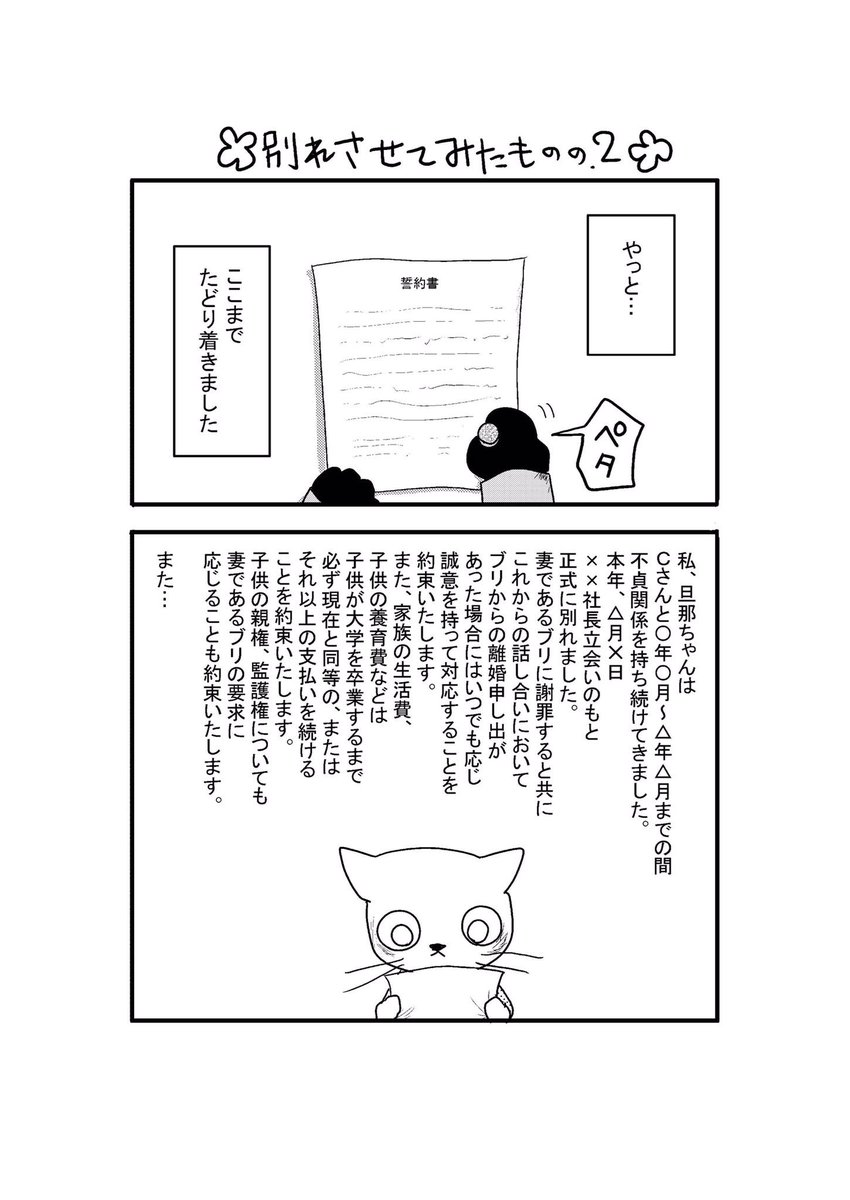 別れさせてみたものの.2
やっと…
誓約書
ペタ
ここまで
たどり着きました
私、旦那ちゃんは
Cさんと〇年〇月～△年△月までの間
不貞関係を持ち続けてきました。
本年、△月×日
××社長立会いのもと
正式に別れました。
妻であるブリに謝罪すると共に
これからの話し合いにおいて
ブリからの離婚申し出が
あった場合にはいつでも応じ
誠意を持って対応することを
約束いたします。
また、家族の生活費、
子供の養育費などは
子供が大学を卒業するまで
必ず現在と同等の、または
それ以上の支払いを続ける
ことを約束いたします。
子供の親権、監護権についても
妻であるブリの要求に
応じることも約束いたします。
また…